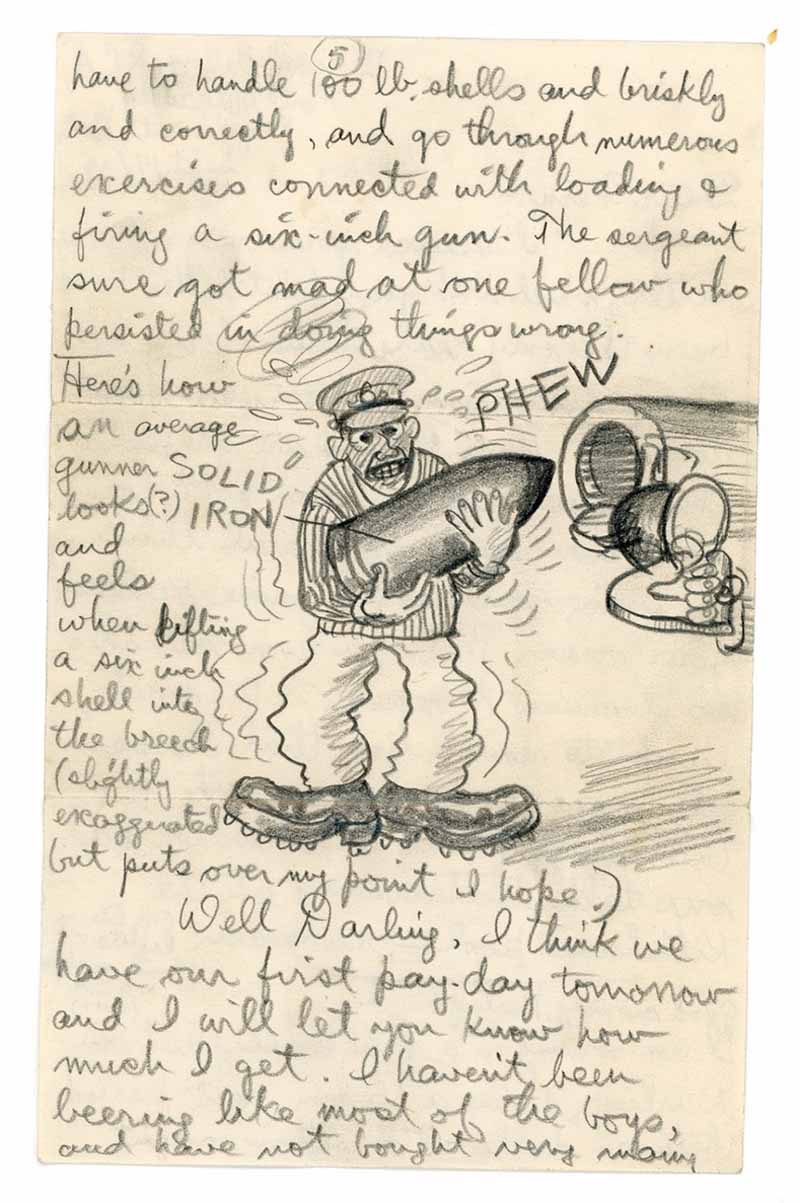 5
have to handle 100 lb. shells and briskly
and correctly, and go through numerous
exercises connected with loading &
firing a six-inch gun. The sergeant
sure got mad at one fellow who
persisted in doing things wrong.
Here's how
an average
gunner
looks(?)
and
feels
when lifting
a six inch
shell into
the breech
(slightly
exaggerated
but puts over my point I hope.)
SOLID
IRON
PHEW
Well Darling, I think we
have our first pay-day tomorrow
and I will let you know how
much I get. I haven't been
beering like most of the boys,
and have not bought very many